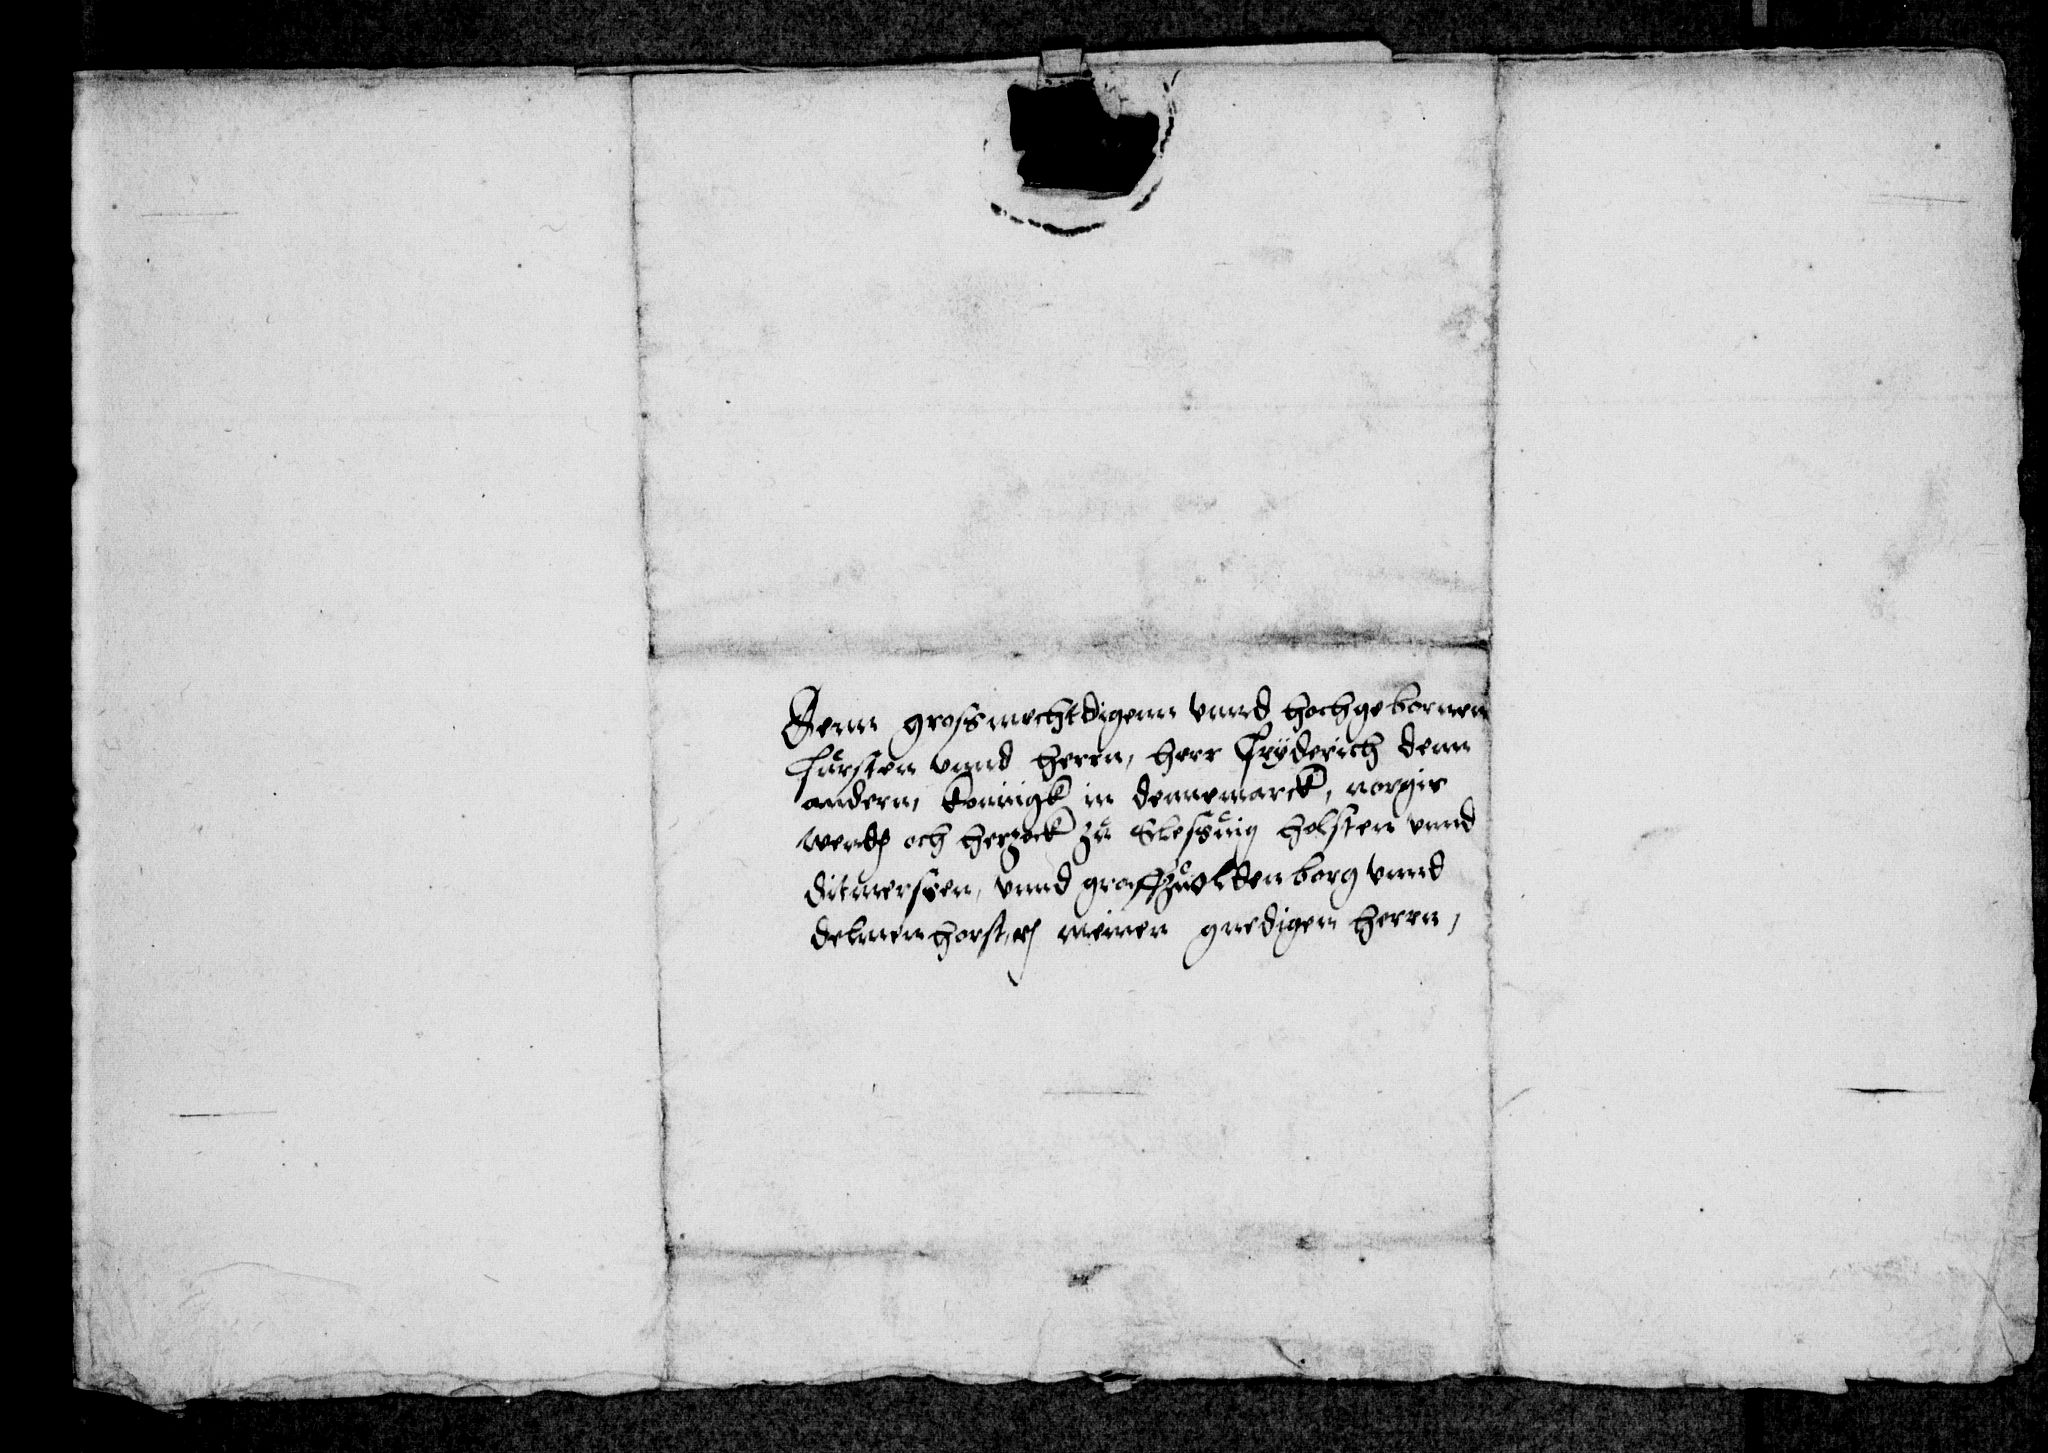 Denn grossmechtdigenn vnnd hochgebornen
fůrsten vnnd heren, herr Fryderich denn
andern, konnigk in dennemarck, norgir
wend och herzock zů Slessůig holsten vnnd
ditmerssen, vnnd graff zů oldenborg vnnd
delmenhorst, meinen gnedigen herrn,